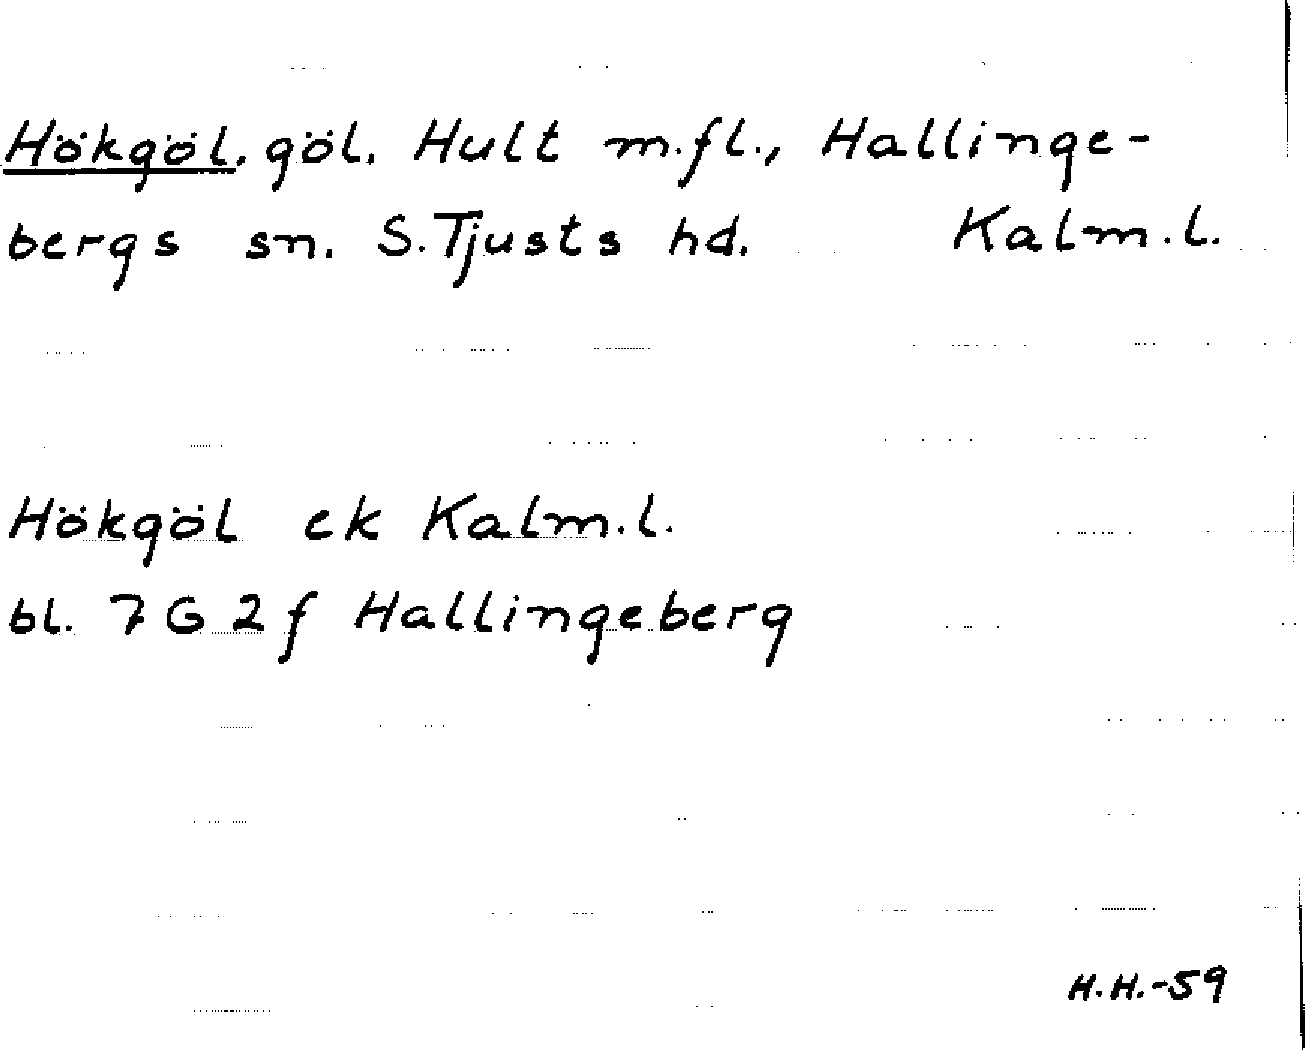 Hökgöl, göl. Hult m.fl., Hallinge-
bergs sn. S. Tjusts hd. Kalm.l.
Hökgöl ek Kalm.l.
bl. 7 G 2 f Hallingeberg
H.H.-59